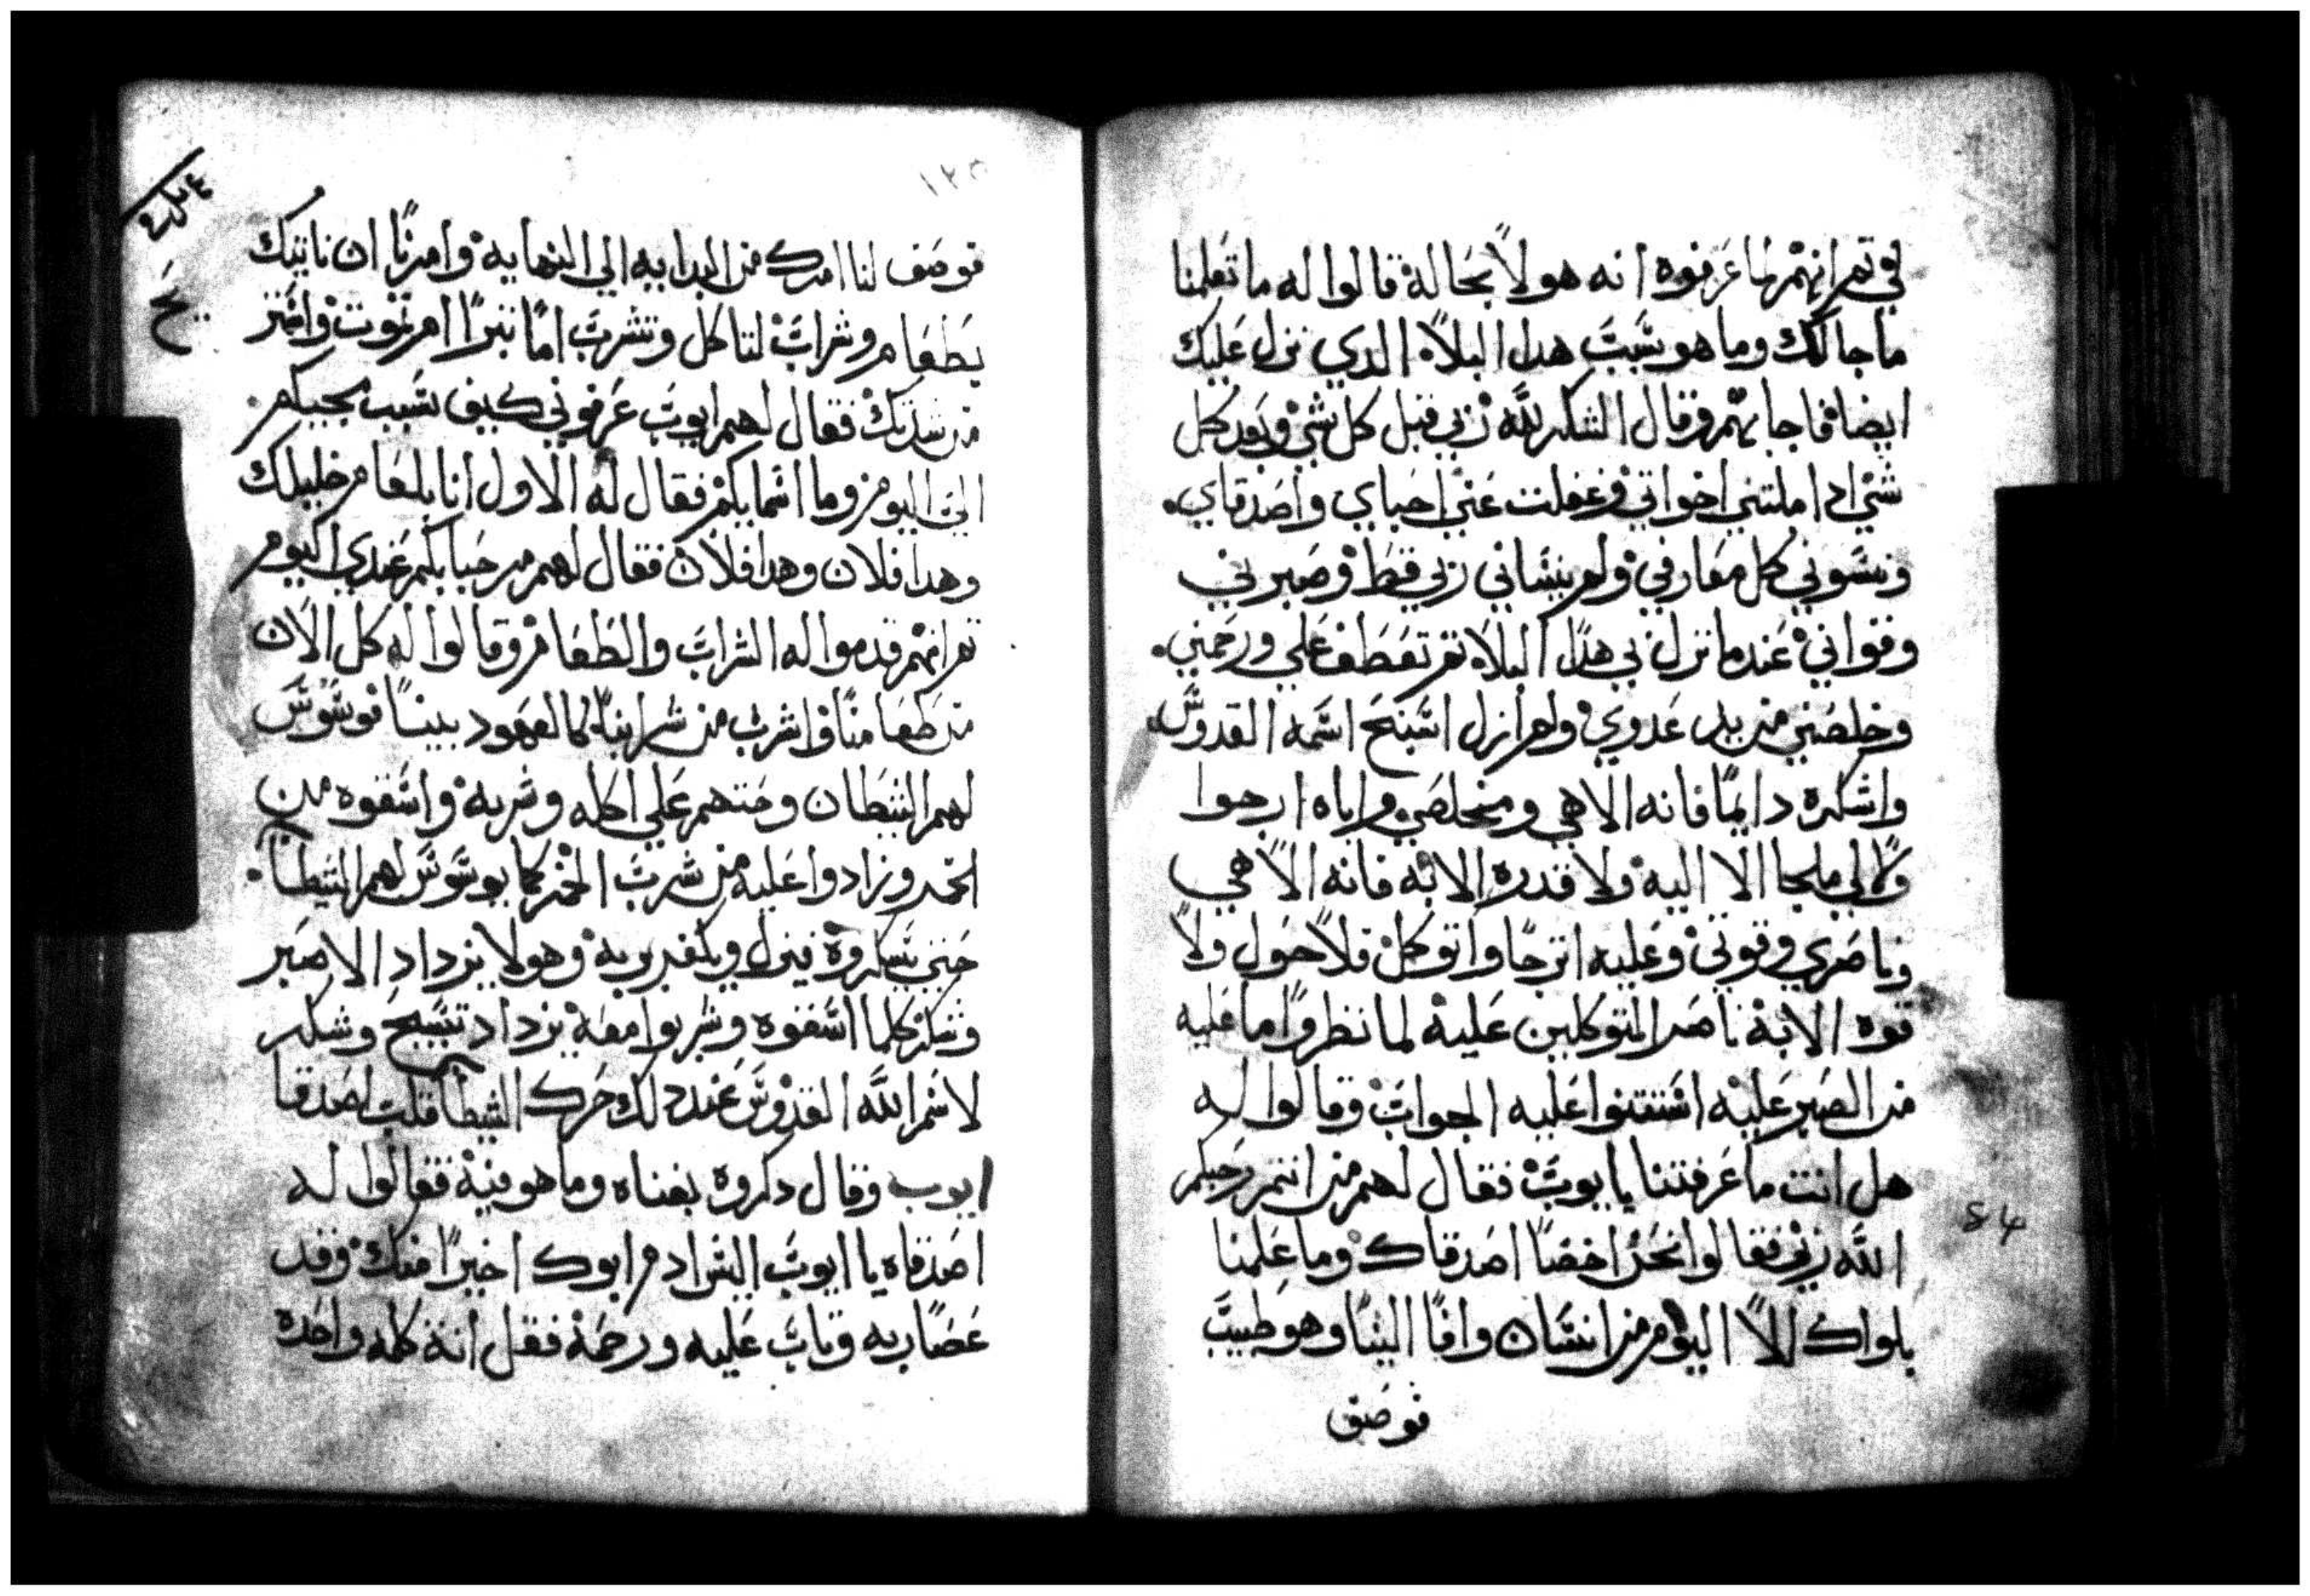 في تم انهم لما عرفوه انه هولا بحاله قالوا له ما تعلمنا
ما جا لك وما هو سبب هدا البلاء الدي نزل عليك
ايضا فاجابهم وقال الشكر لله ربي قبل كل شي وبعد كل
شي ادا ملتني اخواتي وغفلت عني احباي واصدقاي.
ونسوني كل معارفي ولم ينساني ربي قط وصبرني
وقواني عندما نزل بي هدا البلاء تم تعطف علي ورحمني.
وخلصني من يد عدوي ولم ازل اسبح اسمه القدوس
واشكره دايمًا فانه الاهي ومخلصي واياه ارجوا
ولا لي ملجا الا اليه ولا قدره الا به فانه الاهي
وناصري وقوتي وعليه اترجا واتوكل فلا حول ولا
قوه الا به ناصر المتوكلين عليه لما نظروا ما عليه
من الصبر عليه استتقنوا عليه الجواب وقالوا له
هل انت ما عرفتنا يا يوب فقال لهم من انتم رحمكم
الله ربي فقالوا نحن اخصا اصدقاك وما علمنا
بلواك الا اليوم من انسان وافا الينا وهو طبيب
فوصف
١٢٥
فوصف لنا امرك من البدايه الي النهايه وامرنا ان ناتيك
بطعام وشراب لتاكل وتشرب امًا تبرا ام تموت واخبر
من شدتك فقال لهم ايوب عرفوني كيف سبب مجيكم.
الي اليوم وما اسمايكم فقال له الاول انا بلعام خليلك
وهدا فلان وهدا فلان فقال لهم مرحبا بكم عندي اليوم
تم انهم قدموا له الشراب والطعام وقالوا له كل الان
من طعامنا واشرب من شرابنا كالعهود بيننا فوسوس
لهم الشيطان وحتهم علي اكله وشربه واسقوه من
الخمر وزادوا عليه من شرب الخمر كما يوسوس لهم الشيطان.
حتي يسكروه فينزل ويكفر بربه وهو لا يزداد الا صبر
وشكر كلما اسقوه وشربوا معه يزداد تسبيح وشكر
لاسم الله القدوس عند دلك حرك الشيطان قلب اصدقا
ايوب وقال دكروه بفناه وما هو فيه فقالوا له
اصدقاه يا ايوب اليس ادم ابوك اخيرًا منك وقد
عصا ربه وتاب عليه ورحمه فقل انت كلمه واحده